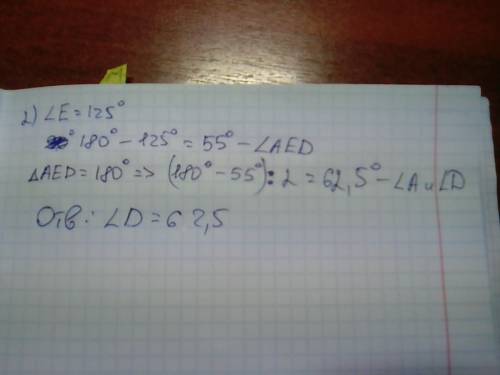 2) ∠E = 125°
180° − 125° = 55° − ∠AED
△AED = 180° => (180° − 55°) : 2 = 62,5° − ∠A и ∠D
Отв: ∠D = 62,5